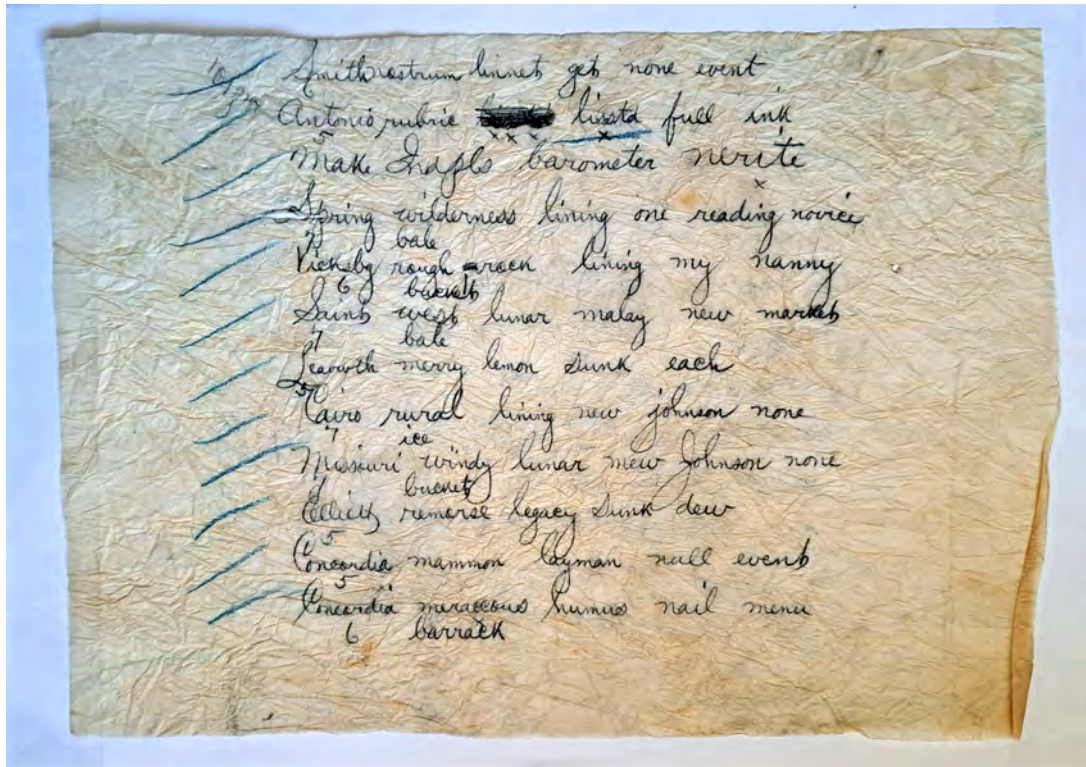 10pm
Smith nostrum linnet get none event
Antonio rubric lissta full ink
5
Make Indpls barometer nerite
Spring wilderness lining one reading novice
7 bale
Vicksbg rough rack lining my nanny
6 bucket
Saint west lunar malay new market
7 bale
Leavwth merry lemon sunk each
5
Cairo rural lining new johnson none
7 ice
Missouri windy lunar mew Johnson none
7 bucket
Elliott removse legacy sunk dew
5
Concordia mammon layman null event
5
Concordia meraccous humus nail menu
6 barrack